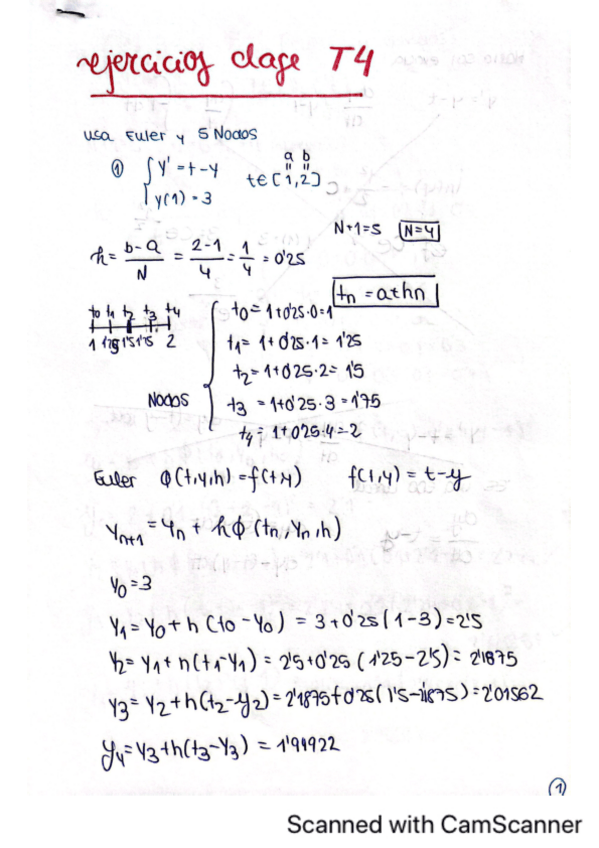 ejercicios clase T4
usa Euler y 5 Nodos
a b
① { y' = t - y     t ∈ [1,2]
y(1) = 3
N+1=5   N=4
h = b-a/N = 2-1/4 = 1/4 = 0'25
tn = a+hn
t0 t1 t2 t3 t4
1 1'25 1'5 1'75 2
NODOS
t0 = 1+0'25·0=1
t1 = 1+0'25·1= 1'25
t2 = 1+0'25·2= 1'5
t3 = 1+0'25·3 = 1'75
t4 = 1+0'25·4=2
Euler   Φ(t,y,h) = f(t,y)     f(t,y) = t-y
Yn+1 = Yn + h Φ (tn, Yn, h)
Y0 = 3
Y1 = Y0 + h (t0 - Y0) = 3+0'25(1-3)=2'5
Y2 = Y1 + h(t1-Y1) = 2'5+0'25 (1'25-2'5)= 2'1875
Y3 = Y2 + h(t2-Y2) = 2'1875+0'25(1'5-2'1875)=2'01562
Y4 = Y3+h(t3-Y3) = 1'94922
①
Scanned with CamScanner